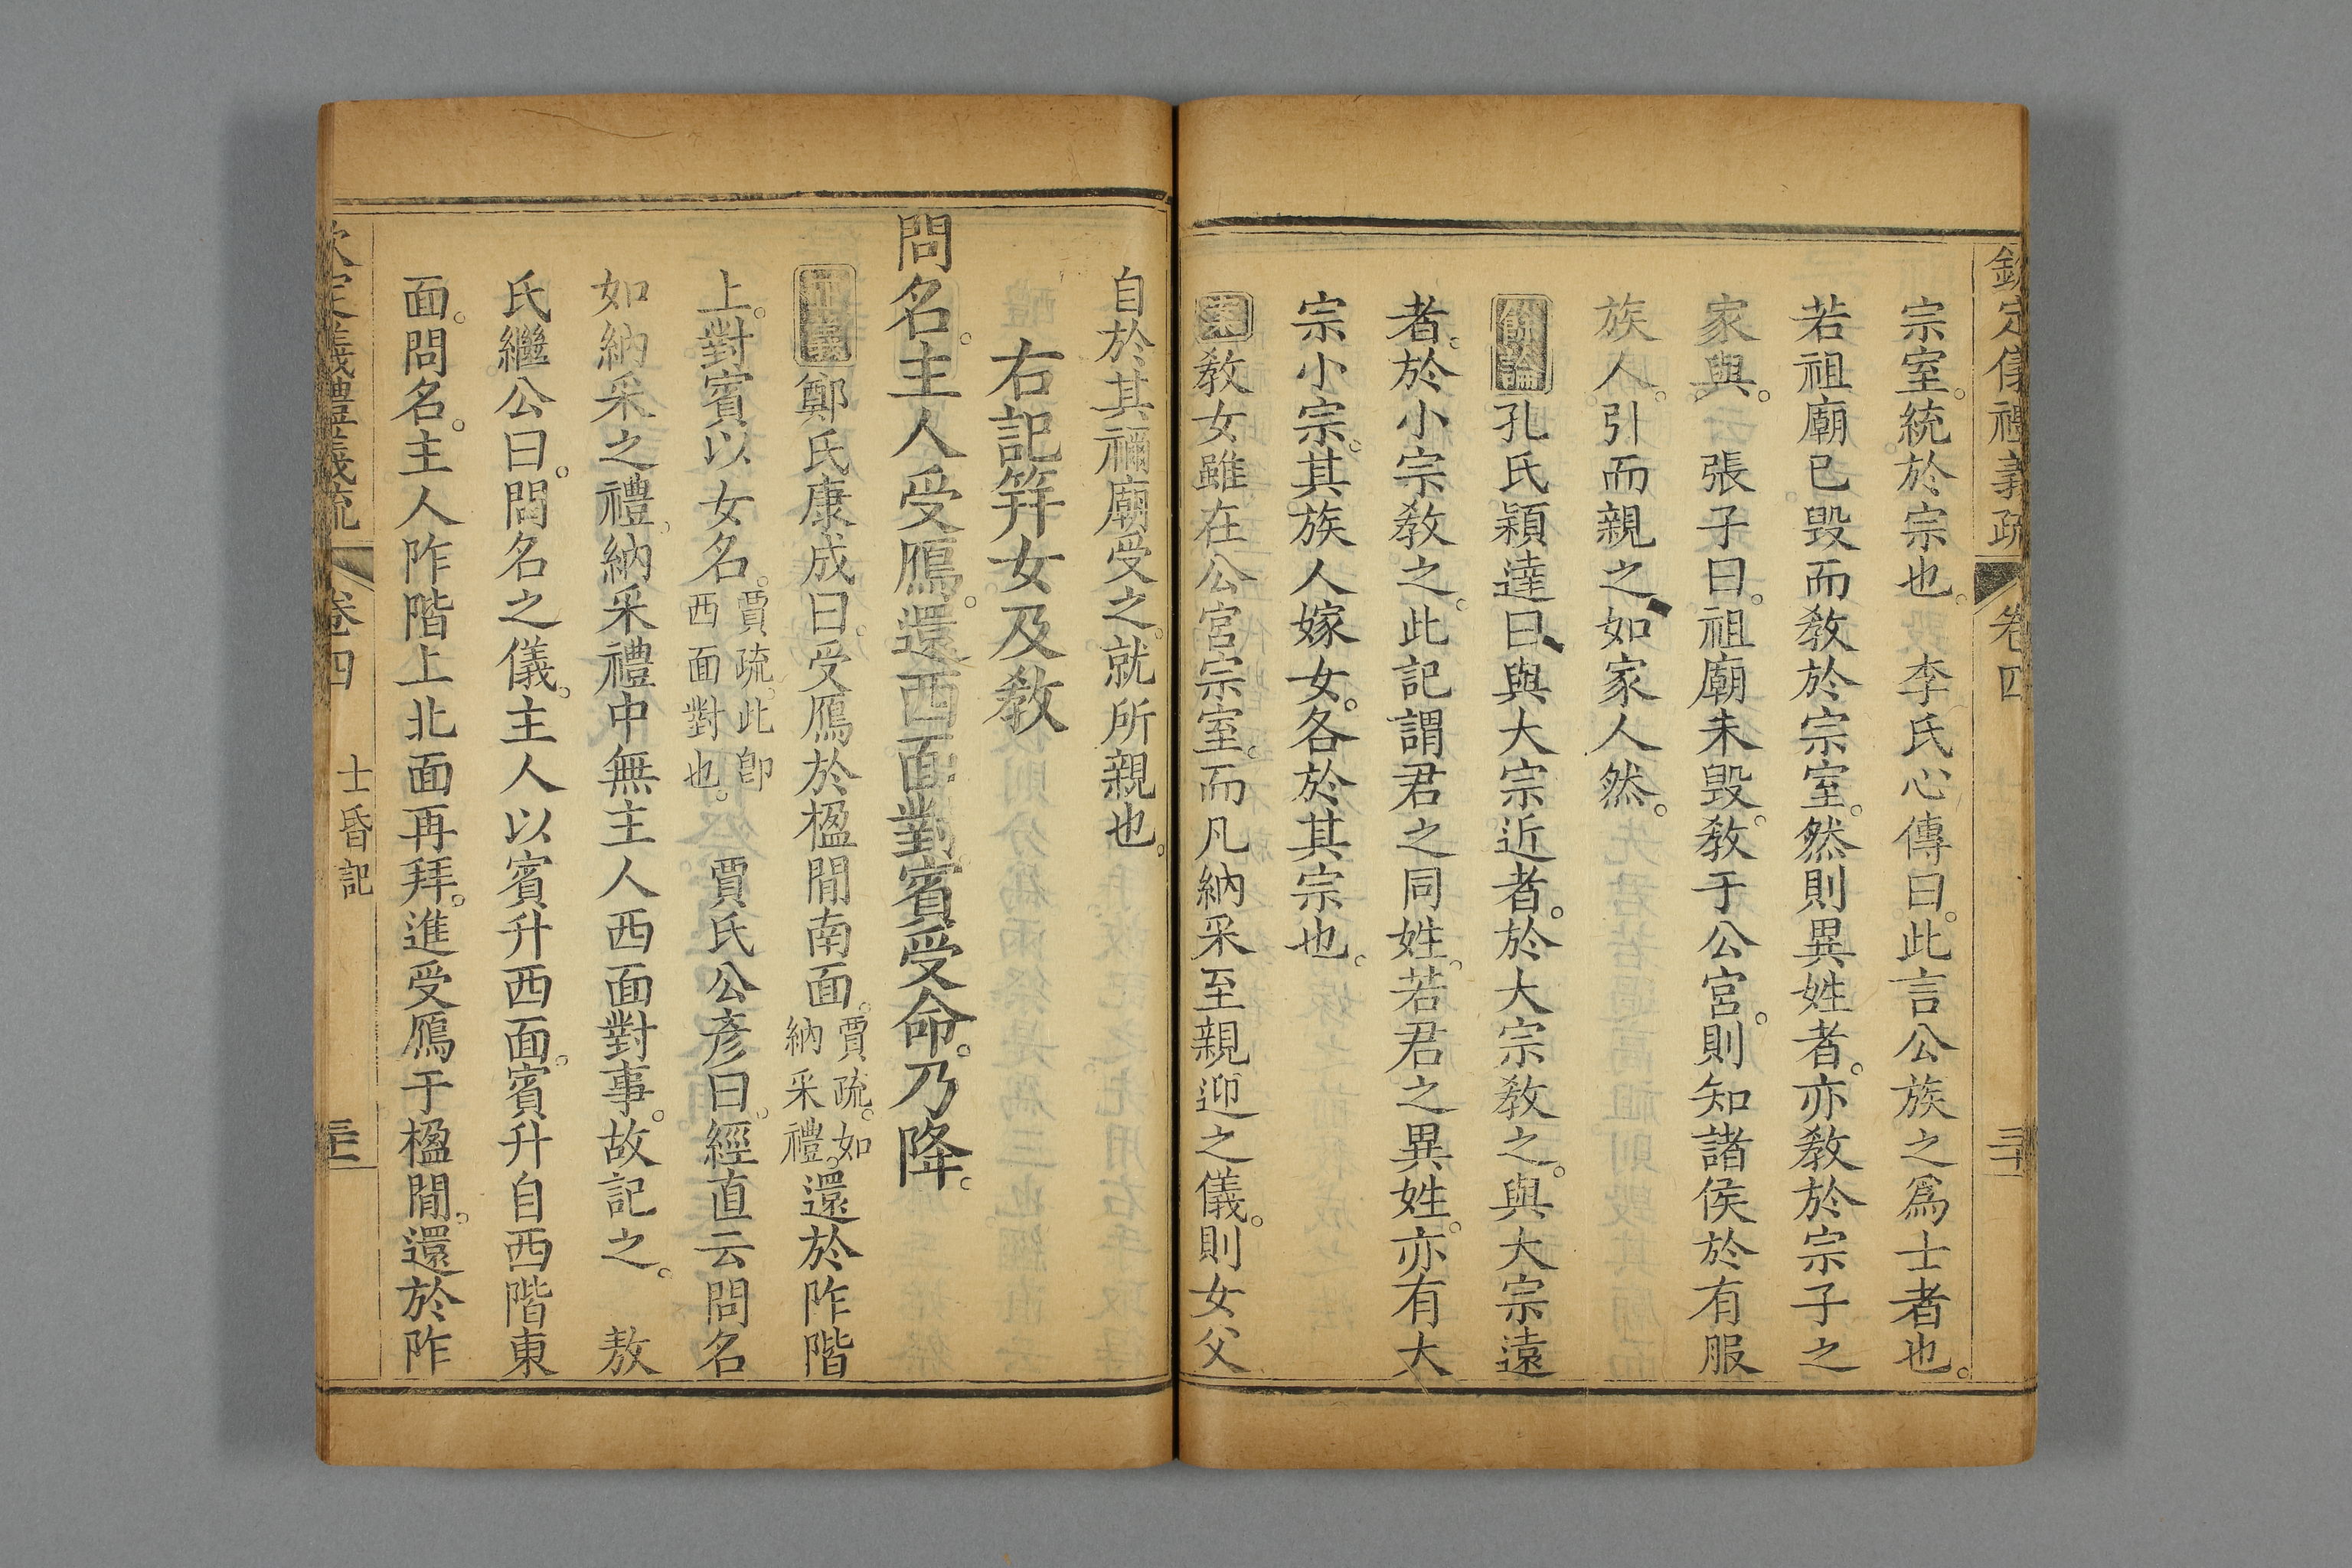 欽定儀禮義疏 卷四 三十
宗室。統於宗也。 李氏心傳曰。此言公族之爲士者也。
若祖廟已毀而敎於宗室。然則異姓者。亦敎於宗子之
家與。 張子曰。祖廟未毀。敎于公宮。則知諸侯於有服
族人。引而親之。如家人然。
餘論 孔氏穎達曰。與大宗近者。於大宗敎之。與大宗遠
者。於小宗敎之。此記謂君之同姓。若君之異姓。亦有大
宗小宗。其族人嫁女。各於其宗也。
案 敎女雖在公宮宗室。而凡納采至親迎之儀。則女父
自於其禰廟受之。就所親也。
右記笄女及敎
問名。主人受鴈。還西面對。賓受命。乃降。
正義 鄭氏康成曰。受鴈於楹間南面。賈疏。如納采禮。還於阼階
上。對賓以女名。賈疏。此卽西面對也。 賈氏公彥曰。經直云問名
如納采之禮。納采禮中無主人西面對事。故記之。 敖
氏繼公曰。問名之儀。主人以賓升西面。賓升自西階東
面。問名。主人阼階上北面再拜。進受鴈于楹間。還於阼
欽定儀禮義疏 卷四 士昏記